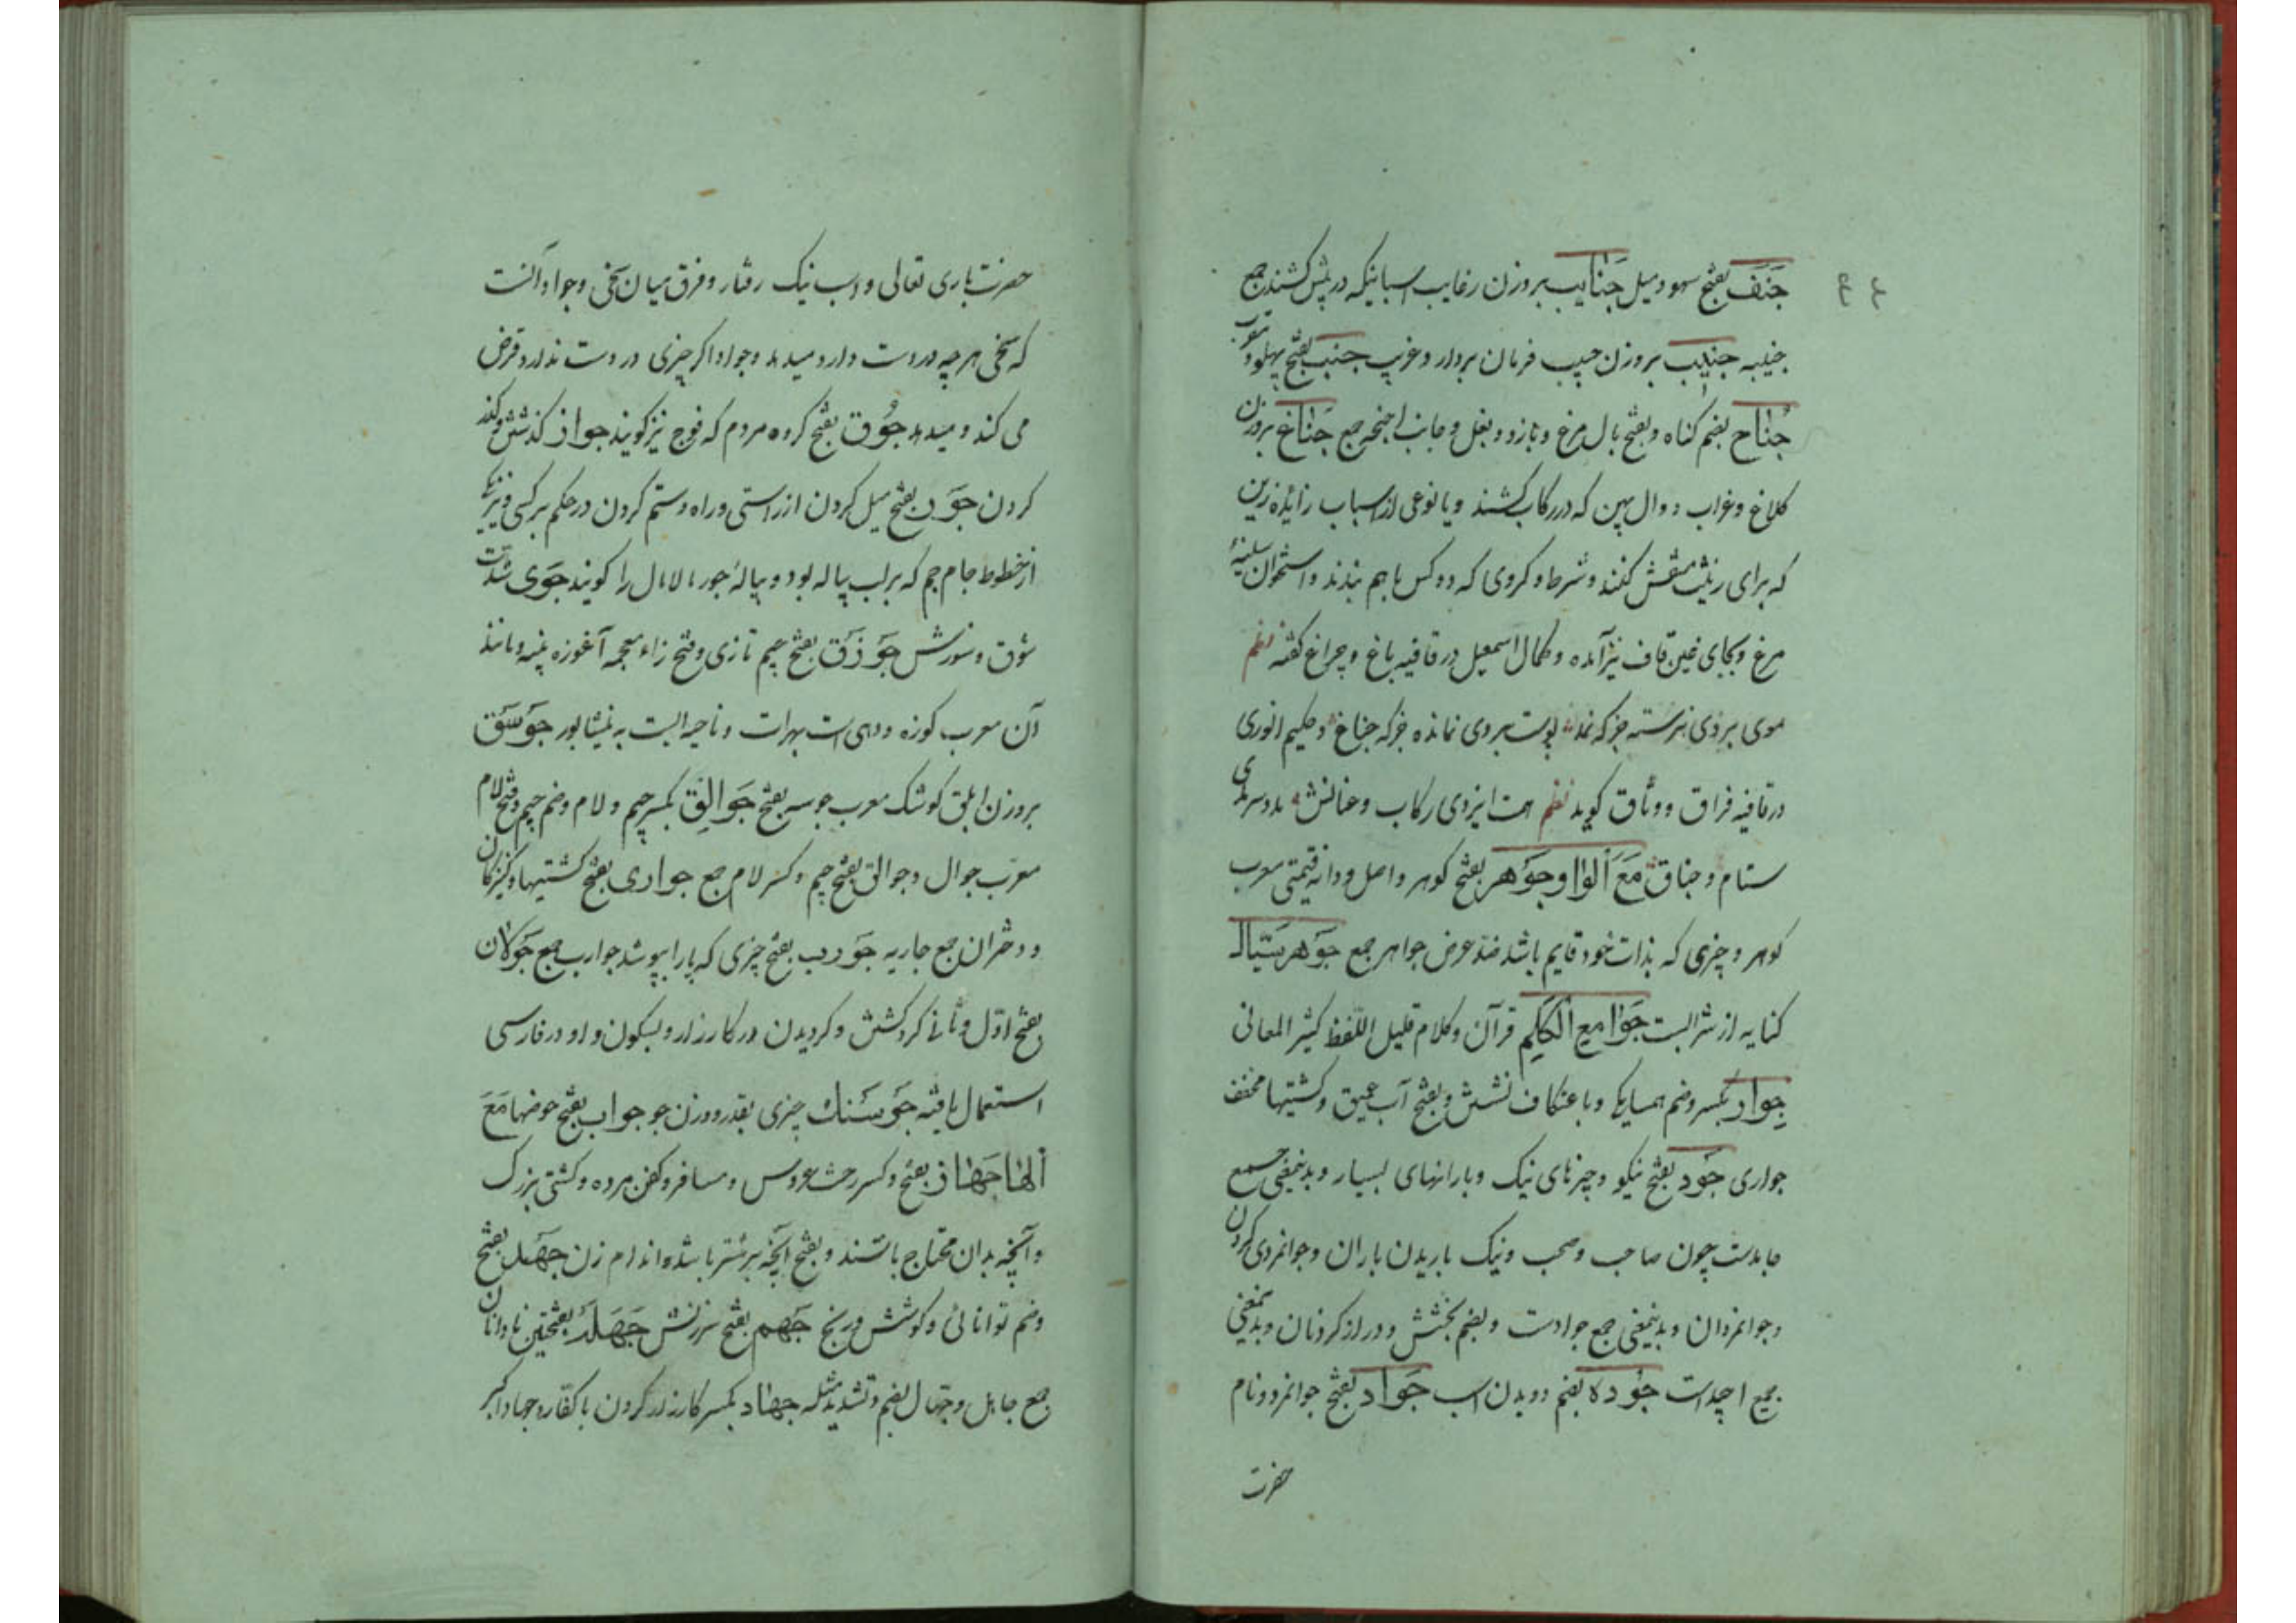 ۴۴
جَنَف بفتح سهو و میل جَنایب بروزن رغایب اسبانیکه در پیش کشند جمع
جنیبه جنیب بروزن حبیب فرمان بردار و غریب جنب بفتح پهلو و
جُناح بضم کناه و بفتح بال مرغ و بازو و بغل و جانب اجنحه جمع جَناغ بروزن
کلاغ و غراب دوال پهن که در رکاب کشند و یا نوعی از اسباب زایده زین
که برای زینت منقش کنند و شرط و کروی که دو کس با هم بندند و استخوان سینهٔ
مرغ و بجای غین قاف نیز آمده و کمال اسمعیل در قافیه باغ و چراغ کفته نظم
موی بروی نرسته جز که نمد پوست بروی نمانده جز که جناغ و حکیم انوری
در قافیه فراق و وثاق کوید نظم همت ایزدی رکاب و عنانش
ستام و جناق مَعَ اَلواو جَوهر بفتح کوهر و اصل و دانهٔ قیمتی معرب
کوهر و چیزی که بذات خود قایم باشد ضد عرض جواهر جمع جَوهر سَیّال
کنایه از شرابست جَوامع الکلِم قرآن و کلام قلیل اللّفظ کثیر المعانی
جِوار بکسر و ضم همسایکی و با عتکاف نشستن و بفتح آب عمیق و کشتیها مخفف
جواری جَود بفتح نیکو و چیزهای نیک و بارانهای بسیار و بدینمعنی جمع
جایدست چون صاحب و صحب و نیک باریدن باران و جوانمردی کردن
و جوانمردان و بدینمعنی جمع جوادست و بضم بخشش و دراز کردنان و بدینمعنی
جمع اجیدست جُوده بضم دویدن اسب جَواد بفتح جوانمرد و نام
حضرت
حضرت باری تعالی و اسب نیک رفتار و فرق میان سخی و جواد آنست
که سخی هر چه در دست دارد میدهد و جواد اکر چیزی در دست ندارد قرض
می کند و میدهد جُوق بفتح کروه مردم که فوج نیز کویند جواز کذشتن و
کردن جَور بفتح میل کردن از راستی و راه و ستم کردن در حکم بر کسی و نیز
از خطوط جام جم که بر لب پیاله بود و پیالهٔ جور مالامال را کویند جَوی شدت
شوق و سوزش جَوزَق بفتح جیم تازی و فتح زاء معجمه آغوزه پنبه و مانند
آن معرب کوزه و دهی است بهرات و ناحیه ایست به نیشابور جَوسَق
بروزن ابلق کوشک معرب جوسه بفتح جَوالِق بکسر جیم و لام و ضم جیم و فتح لام
معرّب جوال و جوالق بفتح جیم و کسر لام جمع جواری بفتح کشتیها و کنیزکان
و دختران جمع جاریه جَورب بفتح چیزی که پا را بپوشد جوارب جمع جَوَلان
بفتح اوّل و ثانی کرد کشتن و کردیدن در کارزار و بسکون واو در فارسی
استعمال یافته جَوسَنک چیزی بقدر و وزن جو جواب بفتح حوضها مَعَ
اَلها جَهاز بفتح و کسر رخت عروس و مسافر و کفن مرده و کشتی بزرک
و آنچه بدان محتاج باشند و بفتح آنچه بر شتر باشد و اندام زن جَهد بفتح
و ضم توانائی و کوشش و رنج جَهم بفتح سرزنش جَهَله بفتحتین نادانان
جمع جاهل و جهّال بضم و تشدید مثله جهاد بکسر کارزار کردن با کفّار و جهاد اکبر